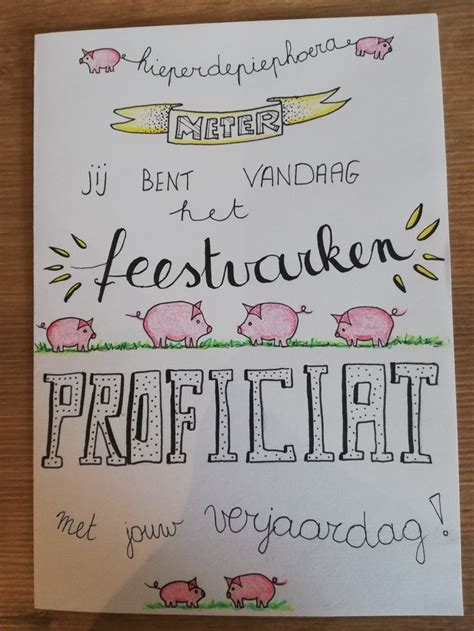 hieperdepiephoera
METER
jij BENT VANDAAG
het
feestvarken
PROFICIAT
met jouw verjaardag!